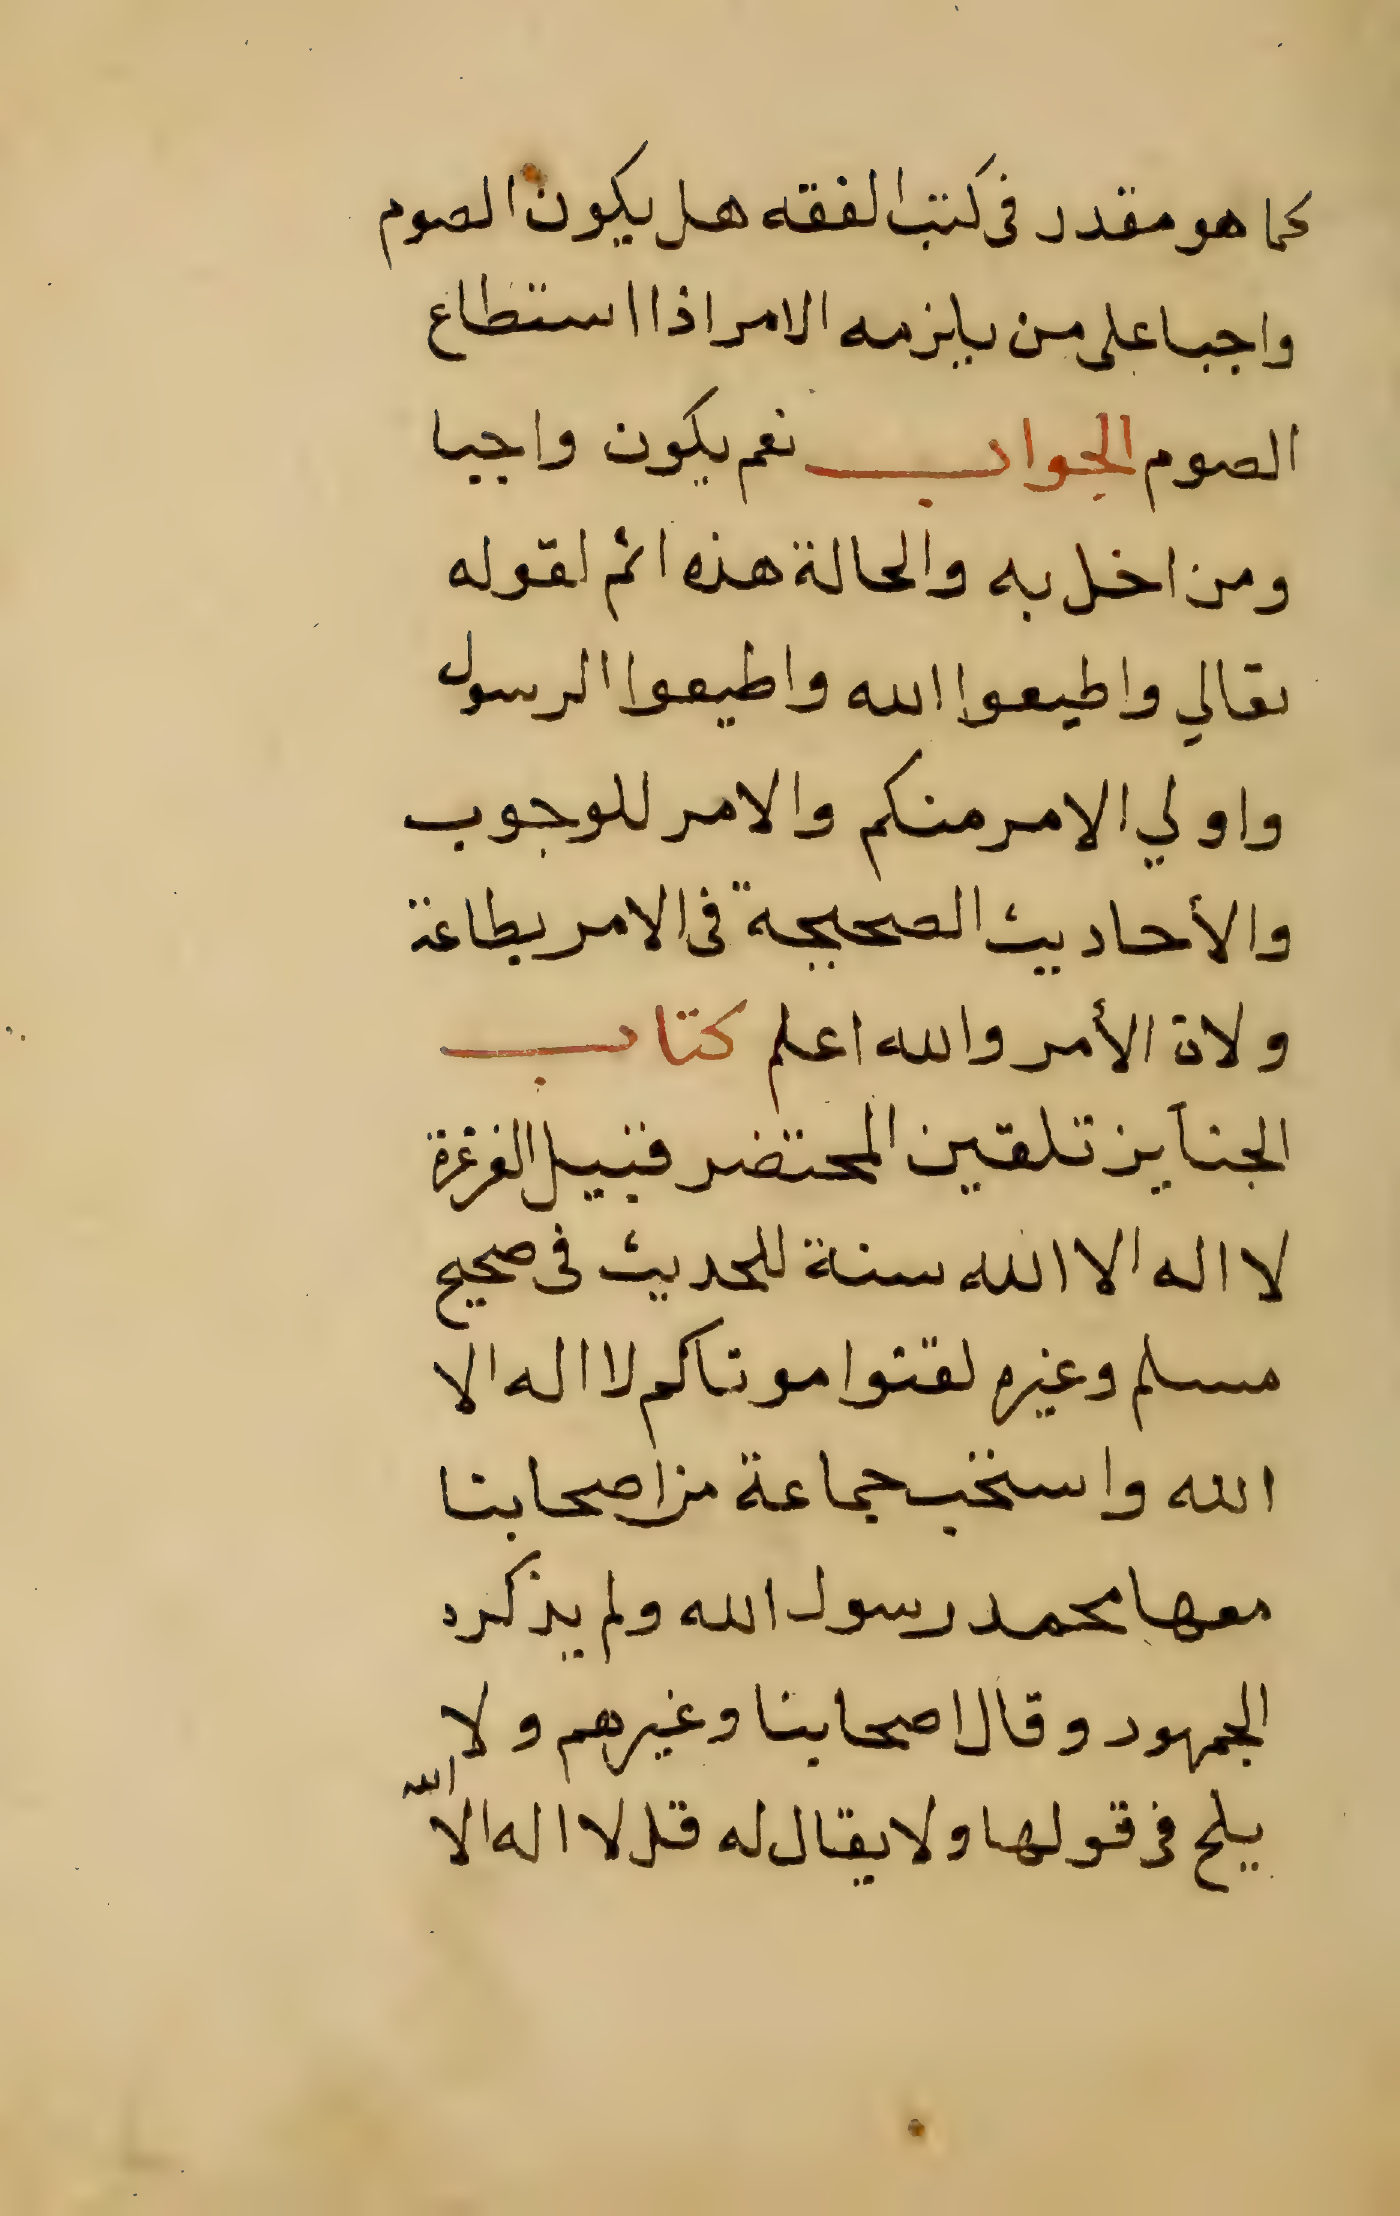 كما هو مقدر في كتب الفقه هل يكون الصوم
واجبا على من يلزمه الامر اذا استطاع
الصوم الجواب نعم يكون واجبا
ومن اخل به والحالة هذه اثم لقوله
تعالي واطيعوا الله واطيعوا الرسول
واولي الامر منكم والامر للوجوب
والأحاديث الصحيحة في الامر بطاعة
ولاة الأمر والله اعلم كتاب
الجنآيز تلقين المحتضر قبيل الغرغرة
لا اله الا الله سنة للحديث في صحيح
مسلم وغيره لقنوا موتاكم لا اله الا
الله واستحب جماعة من اصحابنا
معها محمد رسول الله ولم يذكره
الجمهور وقال اصحابنا وغيرهم ولا
يلح في قولها ولا يقال له قل لا اله الا الله